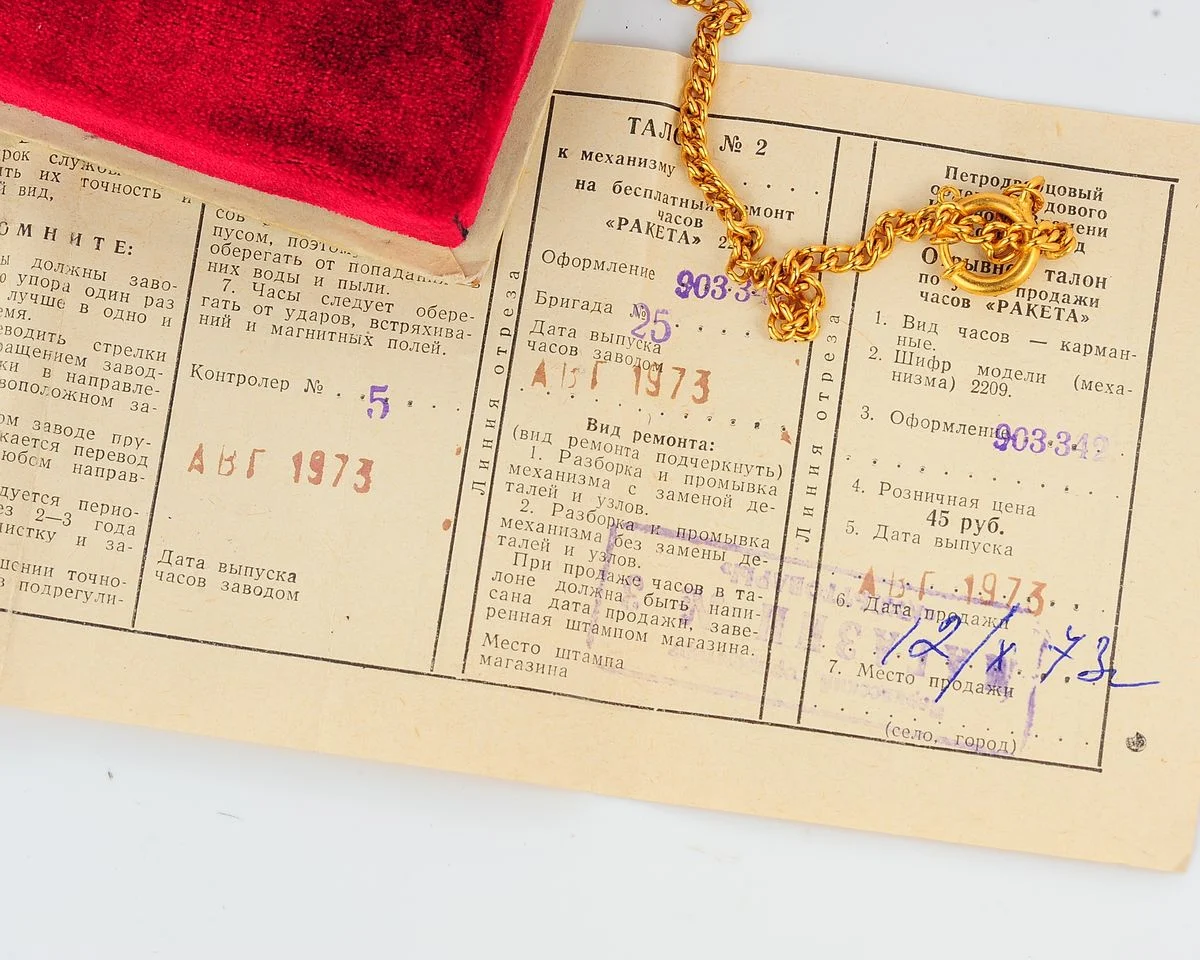 рок службы
ить их точность и
й вид,
ОМНИТЕ:
ы должны заво-
о упора один раз
лучше в одно и
емя.
еводить стрелки
ращением завод-
ки в направле-
воположном за-
ом заводе пру-
кается перевод
любом направ-
дуется перио-
ез 2—3 года
чистку и за-
шении точно-
в подрегули-
сов
пусом, поэтому
оберегать от попадания
них воды и пыли.
7. Часы следует обере-
гать от ударов, встряхива-
ний и магнитных полей.
Контролер № 5
АВГ 1973
Дата выпуска
часов заводом
Линия отреза
ТАЛОН № 2
к механизму
на бесплатный ремонт
часов
«РАКЕТА» 2
Оформление 903·34
Бригада № 25
Дата выпуска
часов заводом
АВГ 1973
Вид ремонта:
(вид ремонта подчеркнуть)
1. Разборка и промывка
механизма с заменой де-
талей и узлов.
2. Разборка и промывка
механизма без замены де-
талей и узлов.
При продаже часов в та-
лоне должна быть напи-
сана дата продажи, заве-
ренная штампом магазина.
Место штампа
магазина
Линия отреза
Петродворцовый
ордена Трудового
Отрывной талон
по продажи
часов «РАКЕТА»
1. Вид часов — карман-
ные.
2. Шифр модели (меха-
низма) 2209.
3. Оформление 903·342
4. Розничная цена
45 руб.
5. Дата выпуска
АВГ 1973
6. Дата продажи
12/X 73г
7. Место продажи
(село, город)